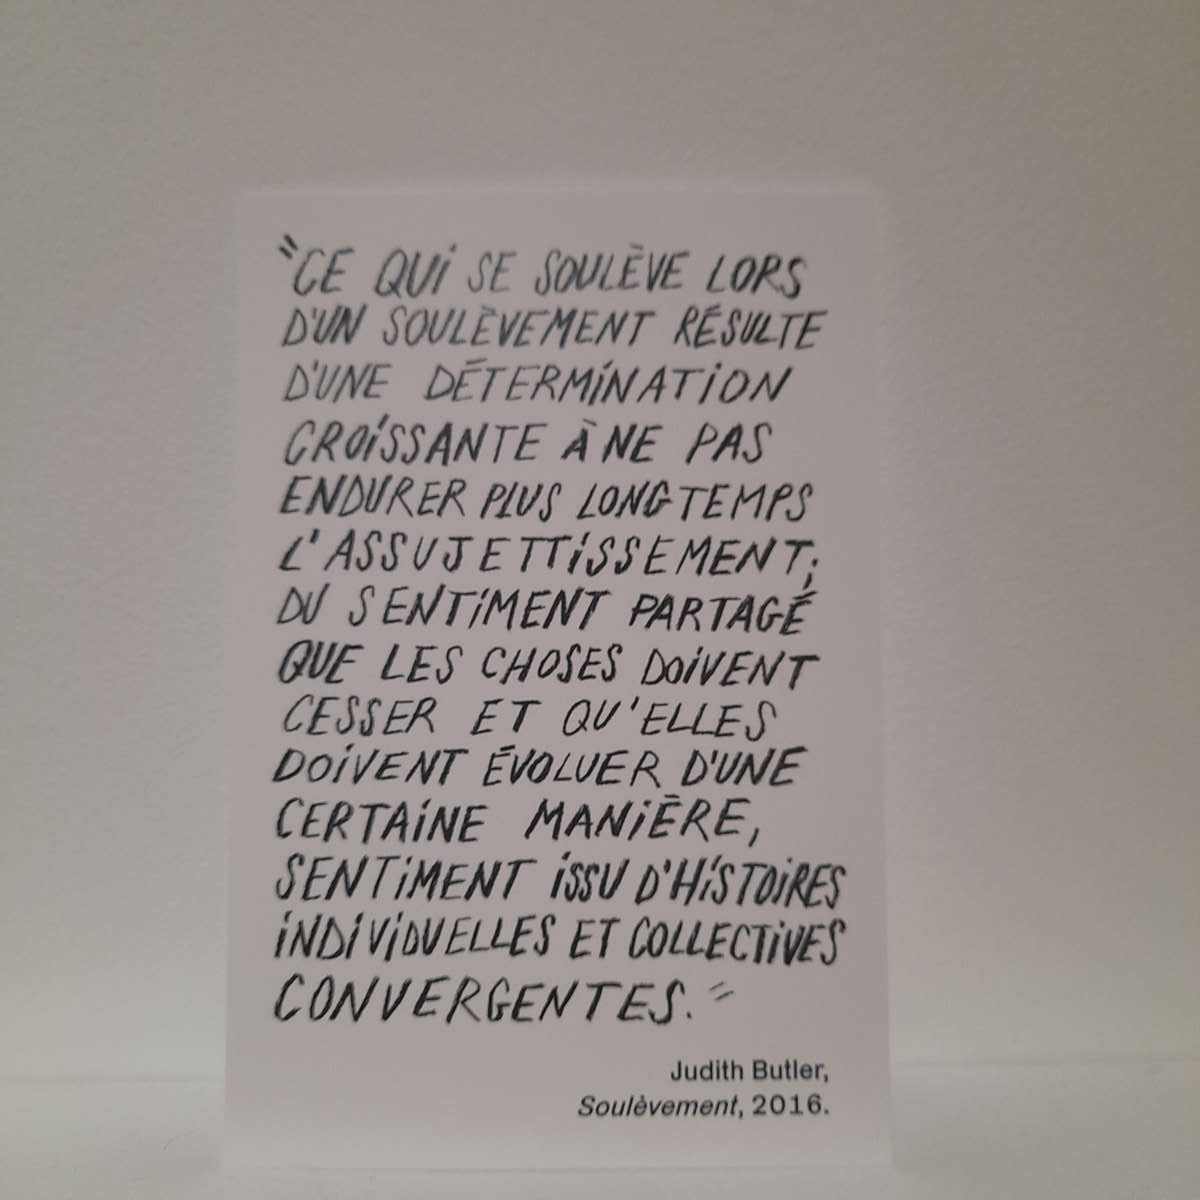 "CE QUI SE SOULÈVE LORS
D'UN SOULÈVEMENT RÉSULTE
D'UNE DÉTERMINATION
CROISSANTE À NE PAS
ENDURER PLUS LONGTEMPS
L'ASSUJETTISSEMENT;
DU SENTIMENT PARTAGÉ
QUE LES CHOSES DOIVENT
CESSER ET QU'ELLES
DOIVENT ÉVOLUER D'UNE
CERTAINE MANIÈRE,
SENTIMENT ISSU D'HISTOIRES
INDIVIDUELLES ET COLLECTIVES
CONVERGENTES."
Judith Butler,
Soulèvement, 2016.